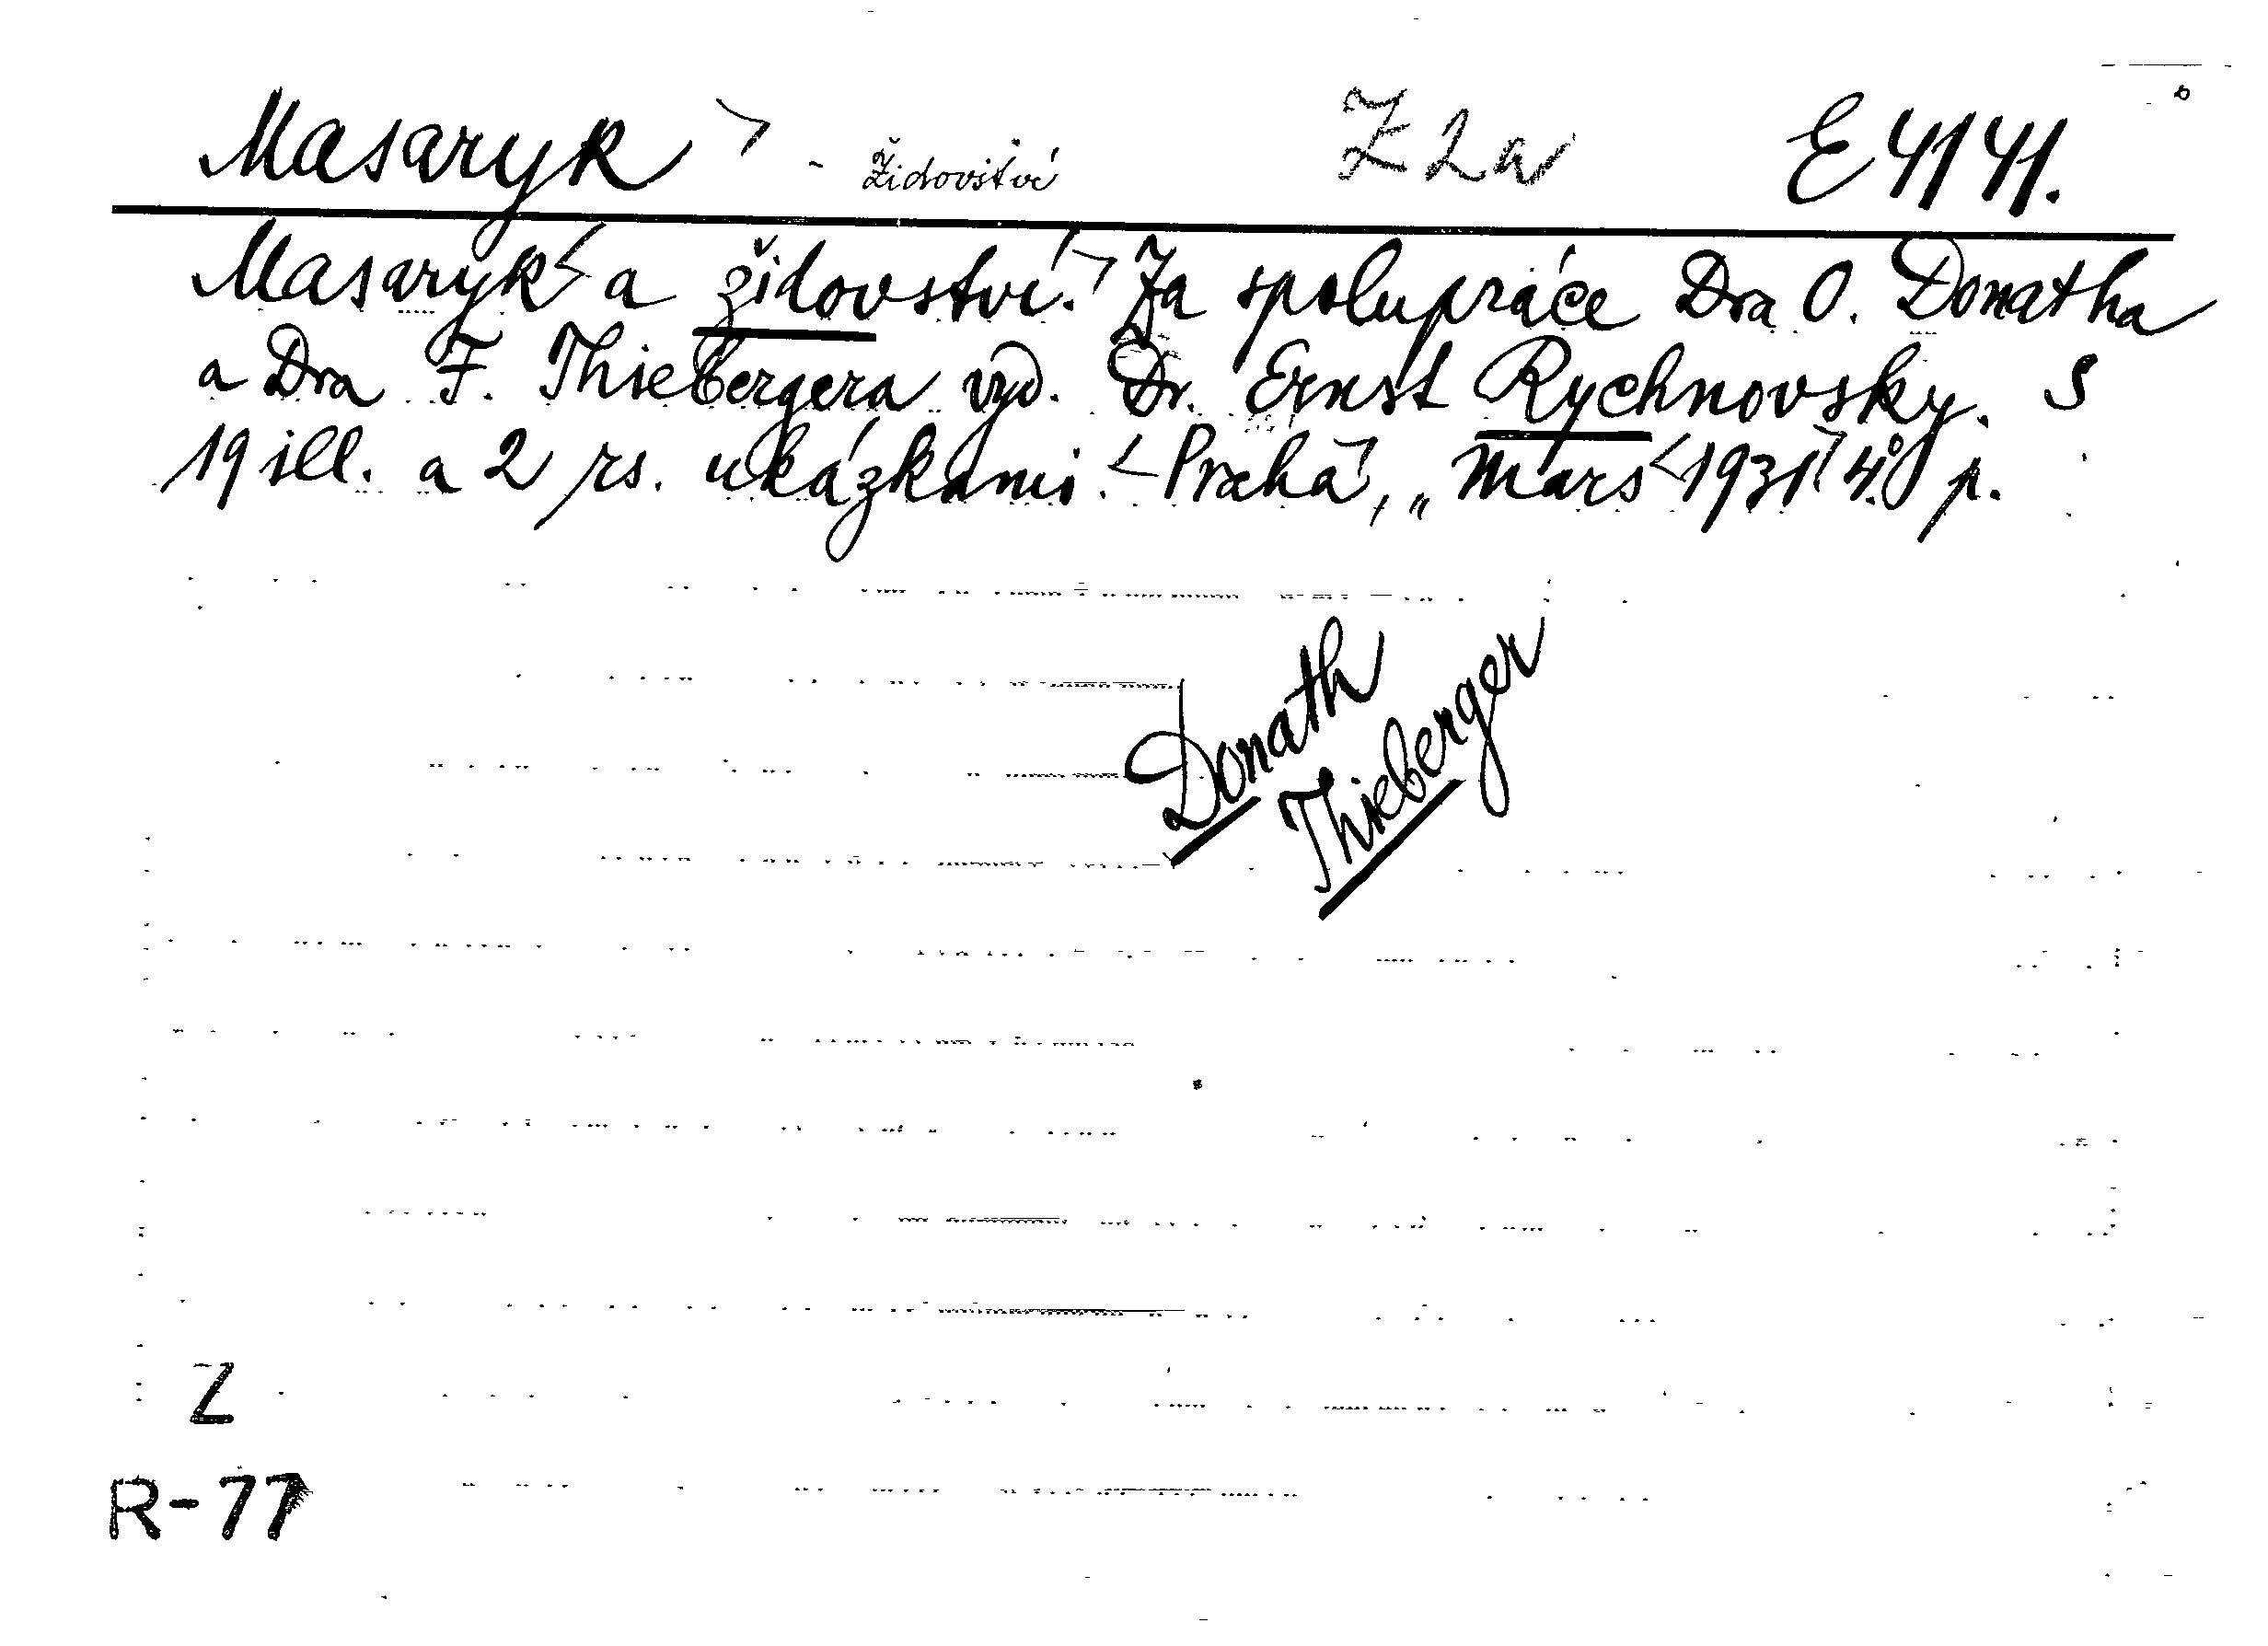 Masaryk - židovství Z 2a E 4141.
Masaryk a židovství. Za spolupráce Dra O. Donatha
a Dra F. Thiebergera vyd. Dr. Ernst Rychnovsky. S
19 ill. a 2 rs. ukázkami. - Praha, „Mars 1931. 4° p.
Donath
Thieberger
Z
R-77